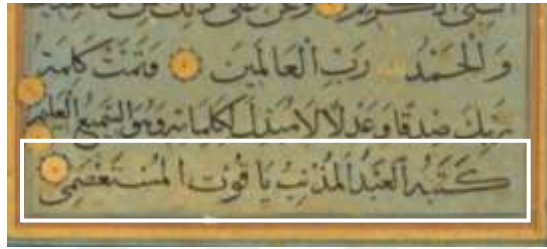 النبي الكريم ونحن على ذلك من
والحمد لله رب العالمين وتمت كلمة
ربك صدقا وعدلا لا مبدل لكلماته وهو السميع العليم
كتبه العبد المذنب ياقوت المستعصمي